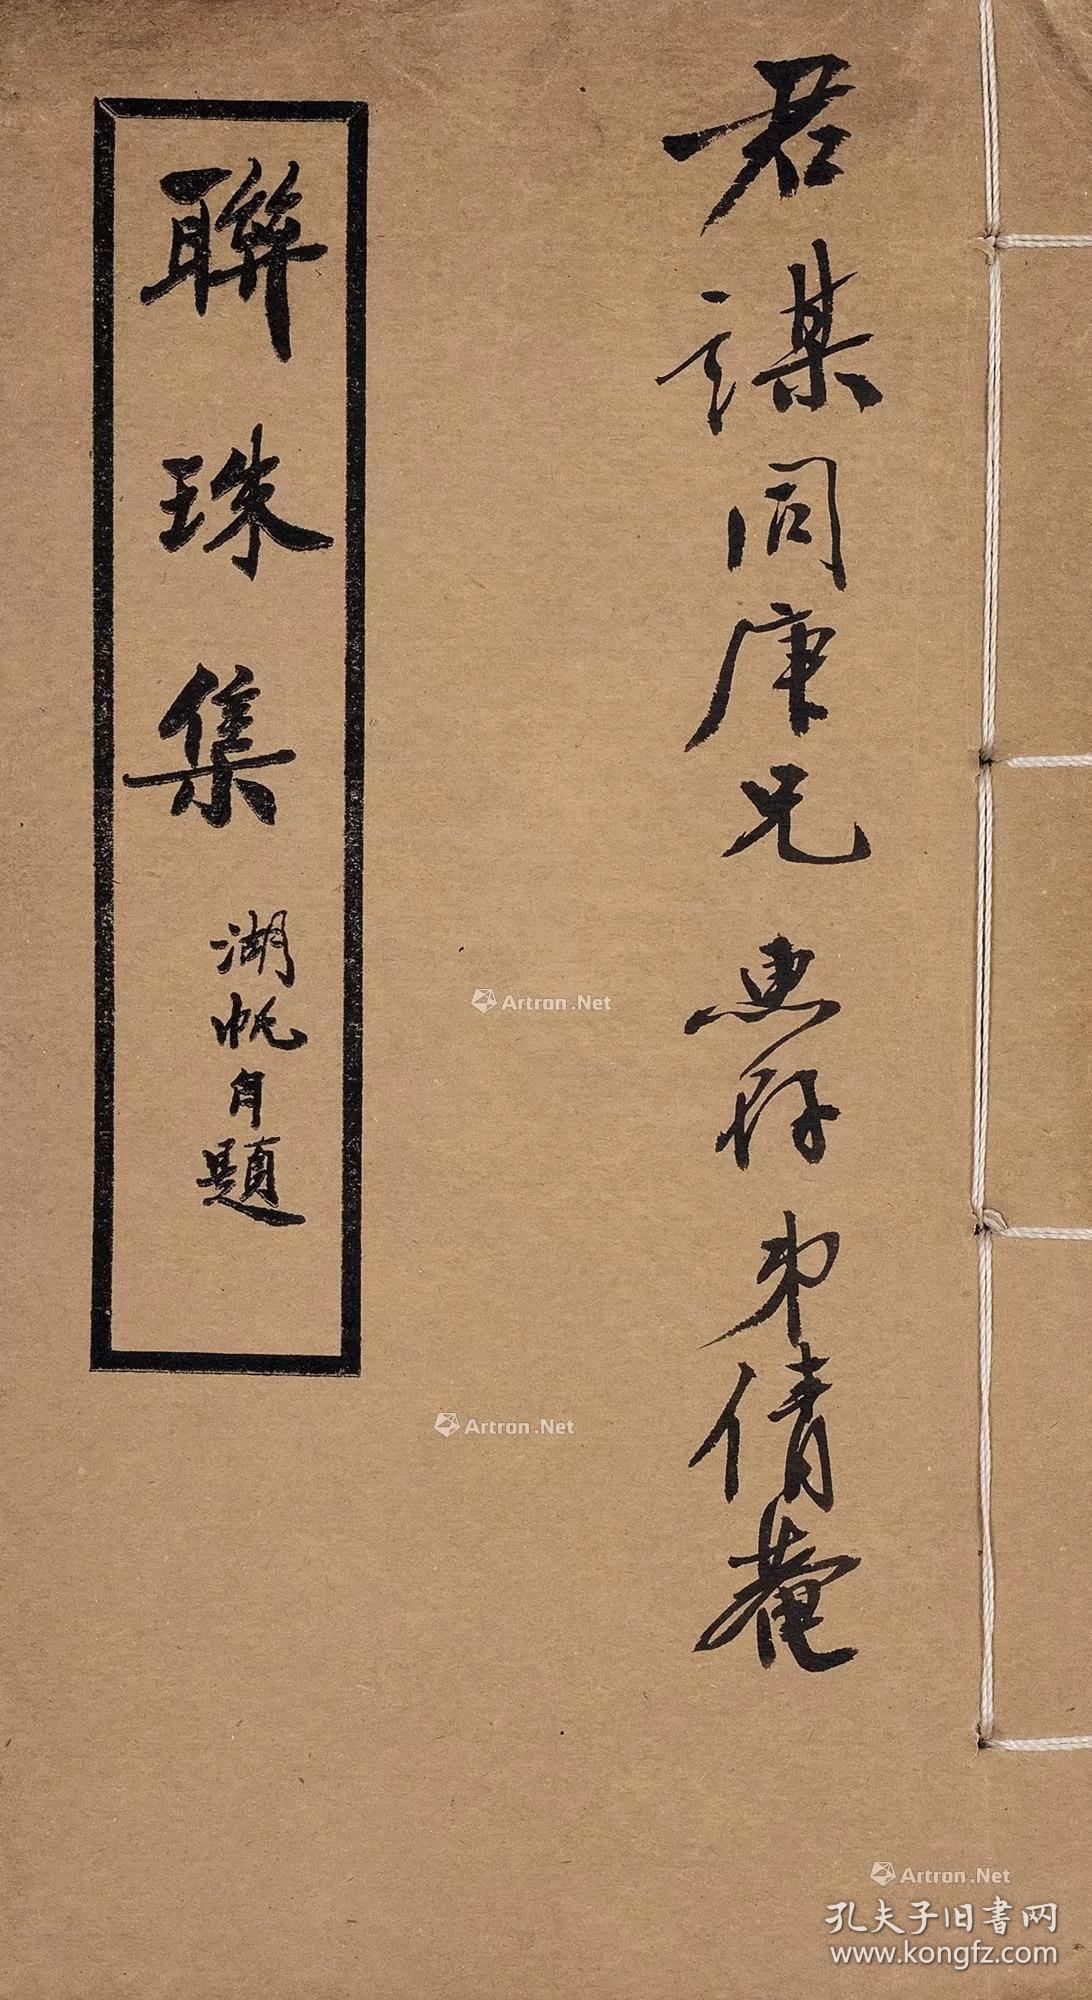 君謀同庚兄惠存弟倩菴
聯珠集
湖帆自題
Artron.Net
Artron.Net
Artron.Net
孔夫子旧書网
www.kongfz.com